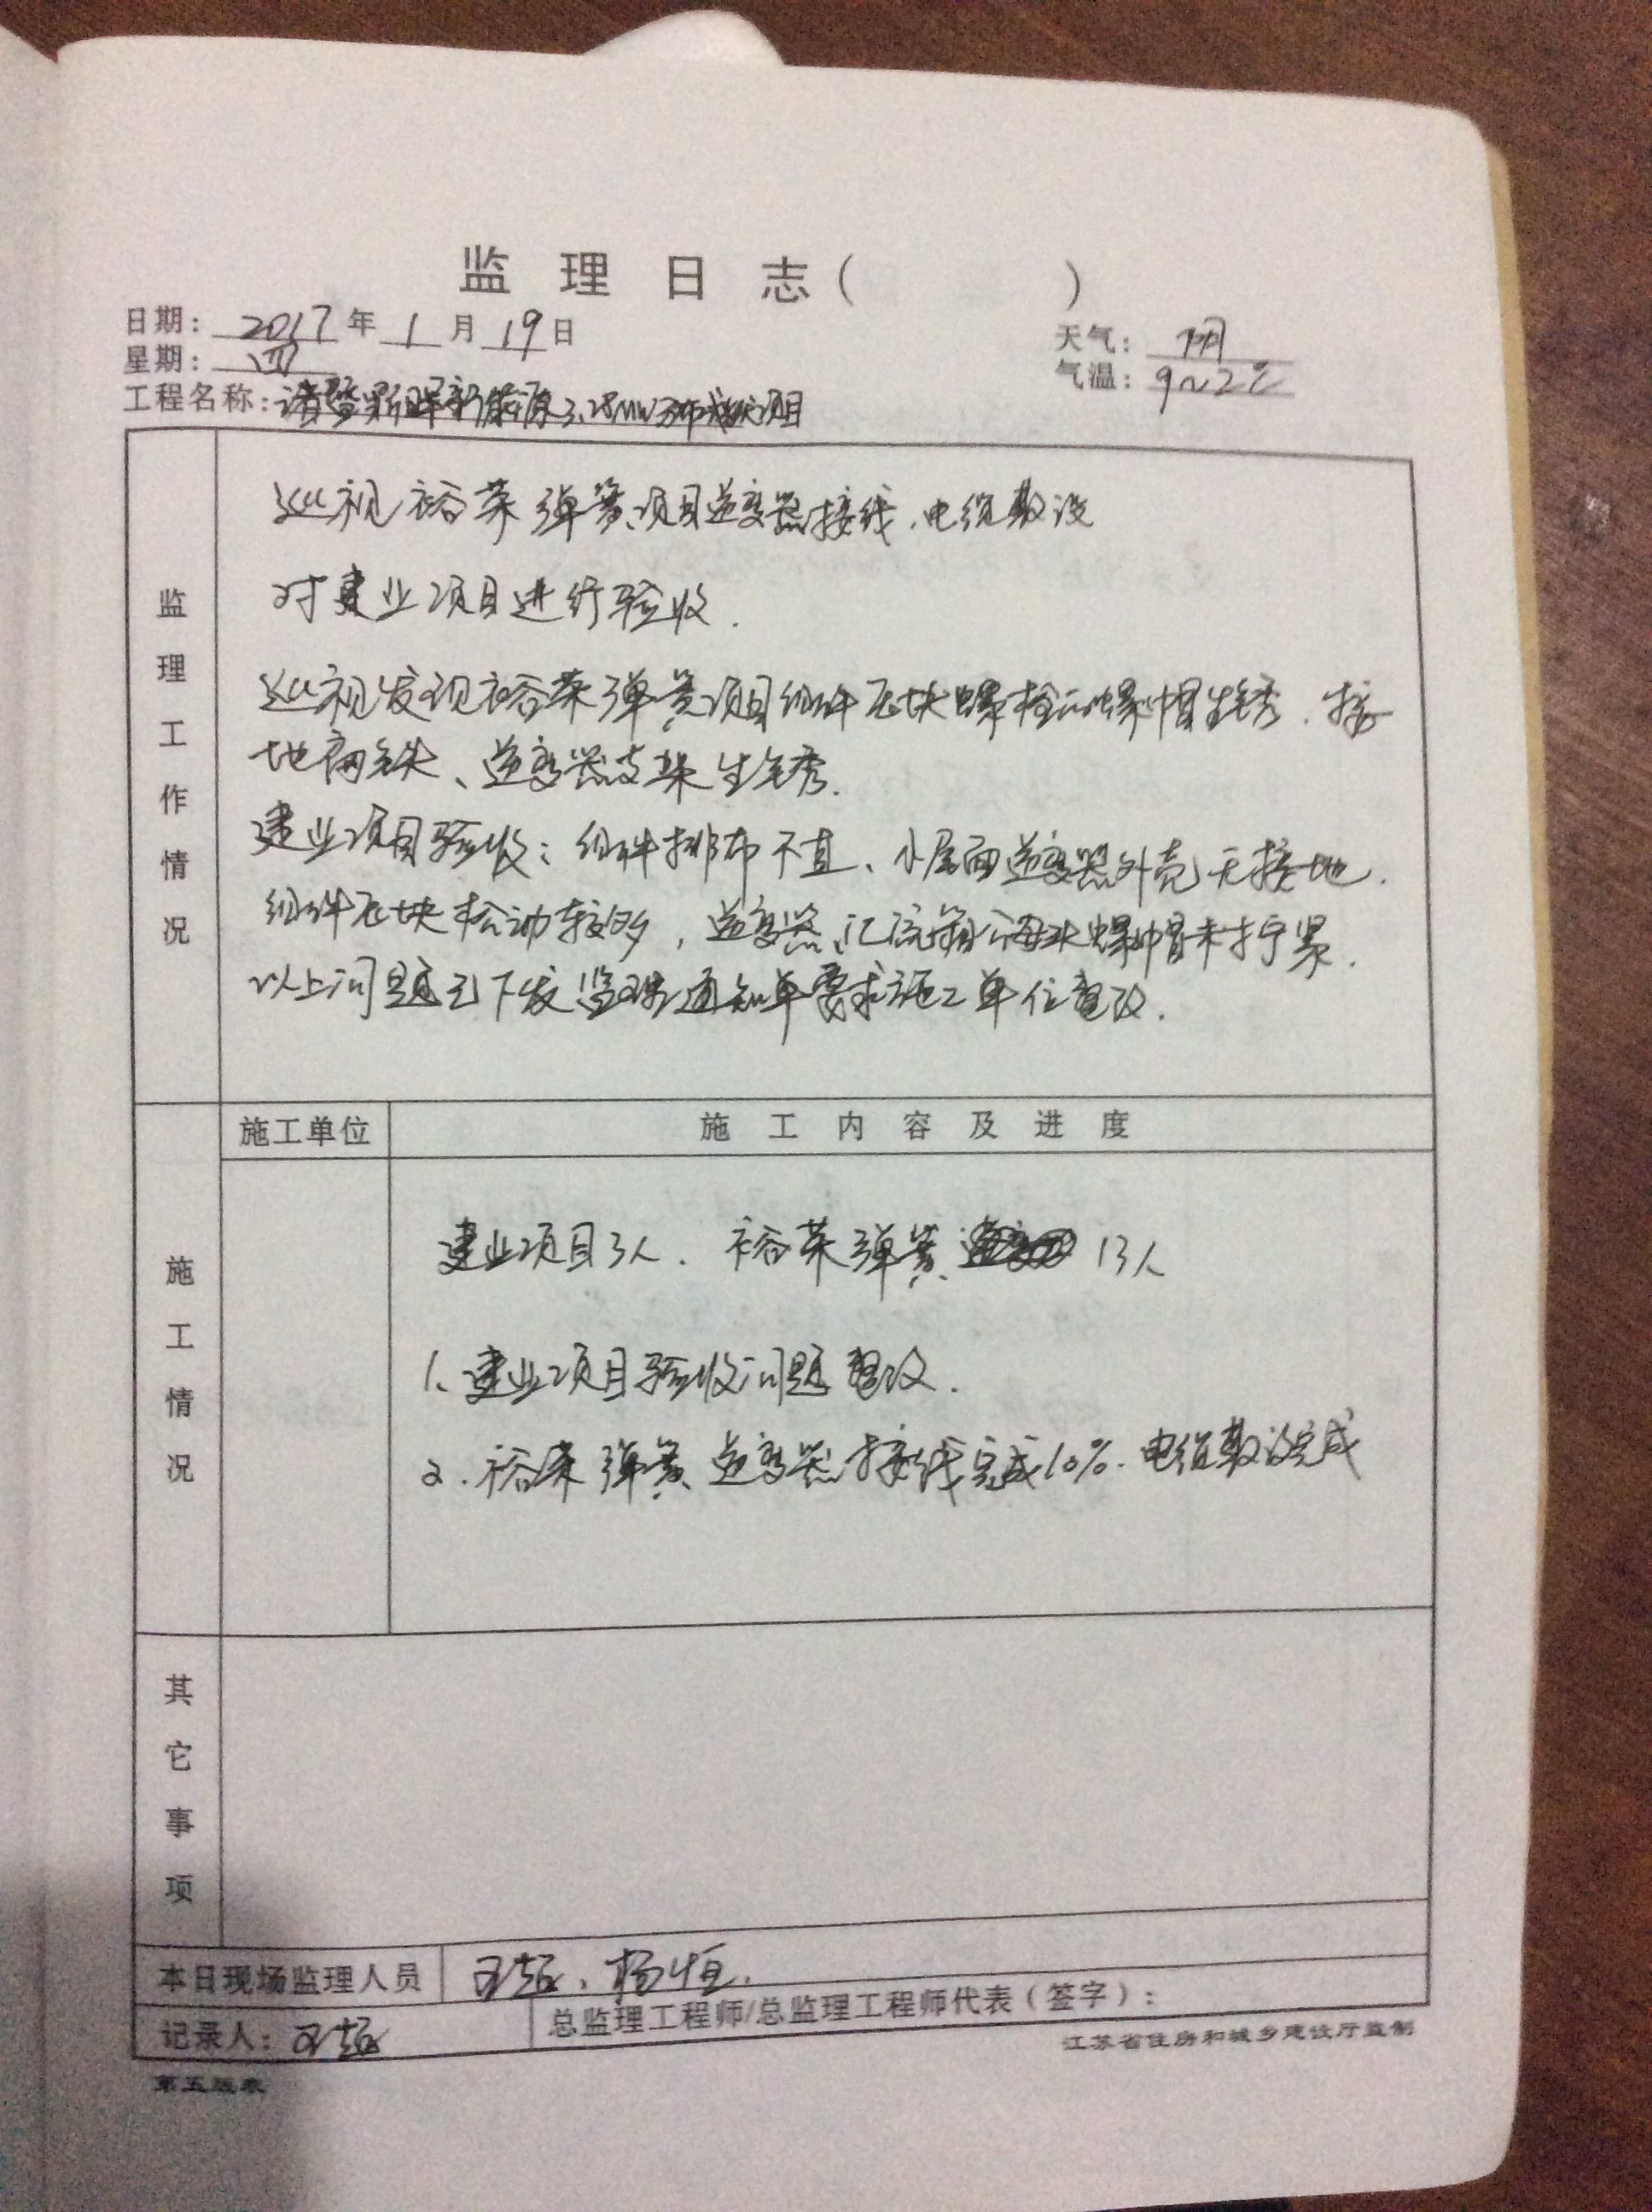 监理日志(    )
日期: 2017年1月19日
天气: 阴
星期: 四
气温: 9~2℃
工程名称: 诸暨斯晖新能源3.28MW分布式项目
监理工作情况
巡视裕荣弹簧项目逆变器接线、电缆敷设
对建业项目进行验收.
巡视发现裕荣弹簧项目组件压块螺栓、螺帽生锈、接
地扁铁、逆变器支架生锈.
建业项目验收:组件排布不直、小屋面逆变器外壳无接地.
组件压块松动较多,逆变器、汇流箱公母头螺帽未拧紧.
以上问题已下发监理通知单要求施工单位整改.
施工情况
施工单位
施工内容及进度
建业项目3人. 裕荣弹簧 13人
1、建业项目验收问题整改.
2.裕荣弹簧逆变器接线完成10%.电缆敷设完成
其它事项
本日现场监理人员 王超、杨恒.
记录人: 王超
总监理工程师/总监理工程师代表(签字):
江苏省住房和城乡建设厅监制
第五版表